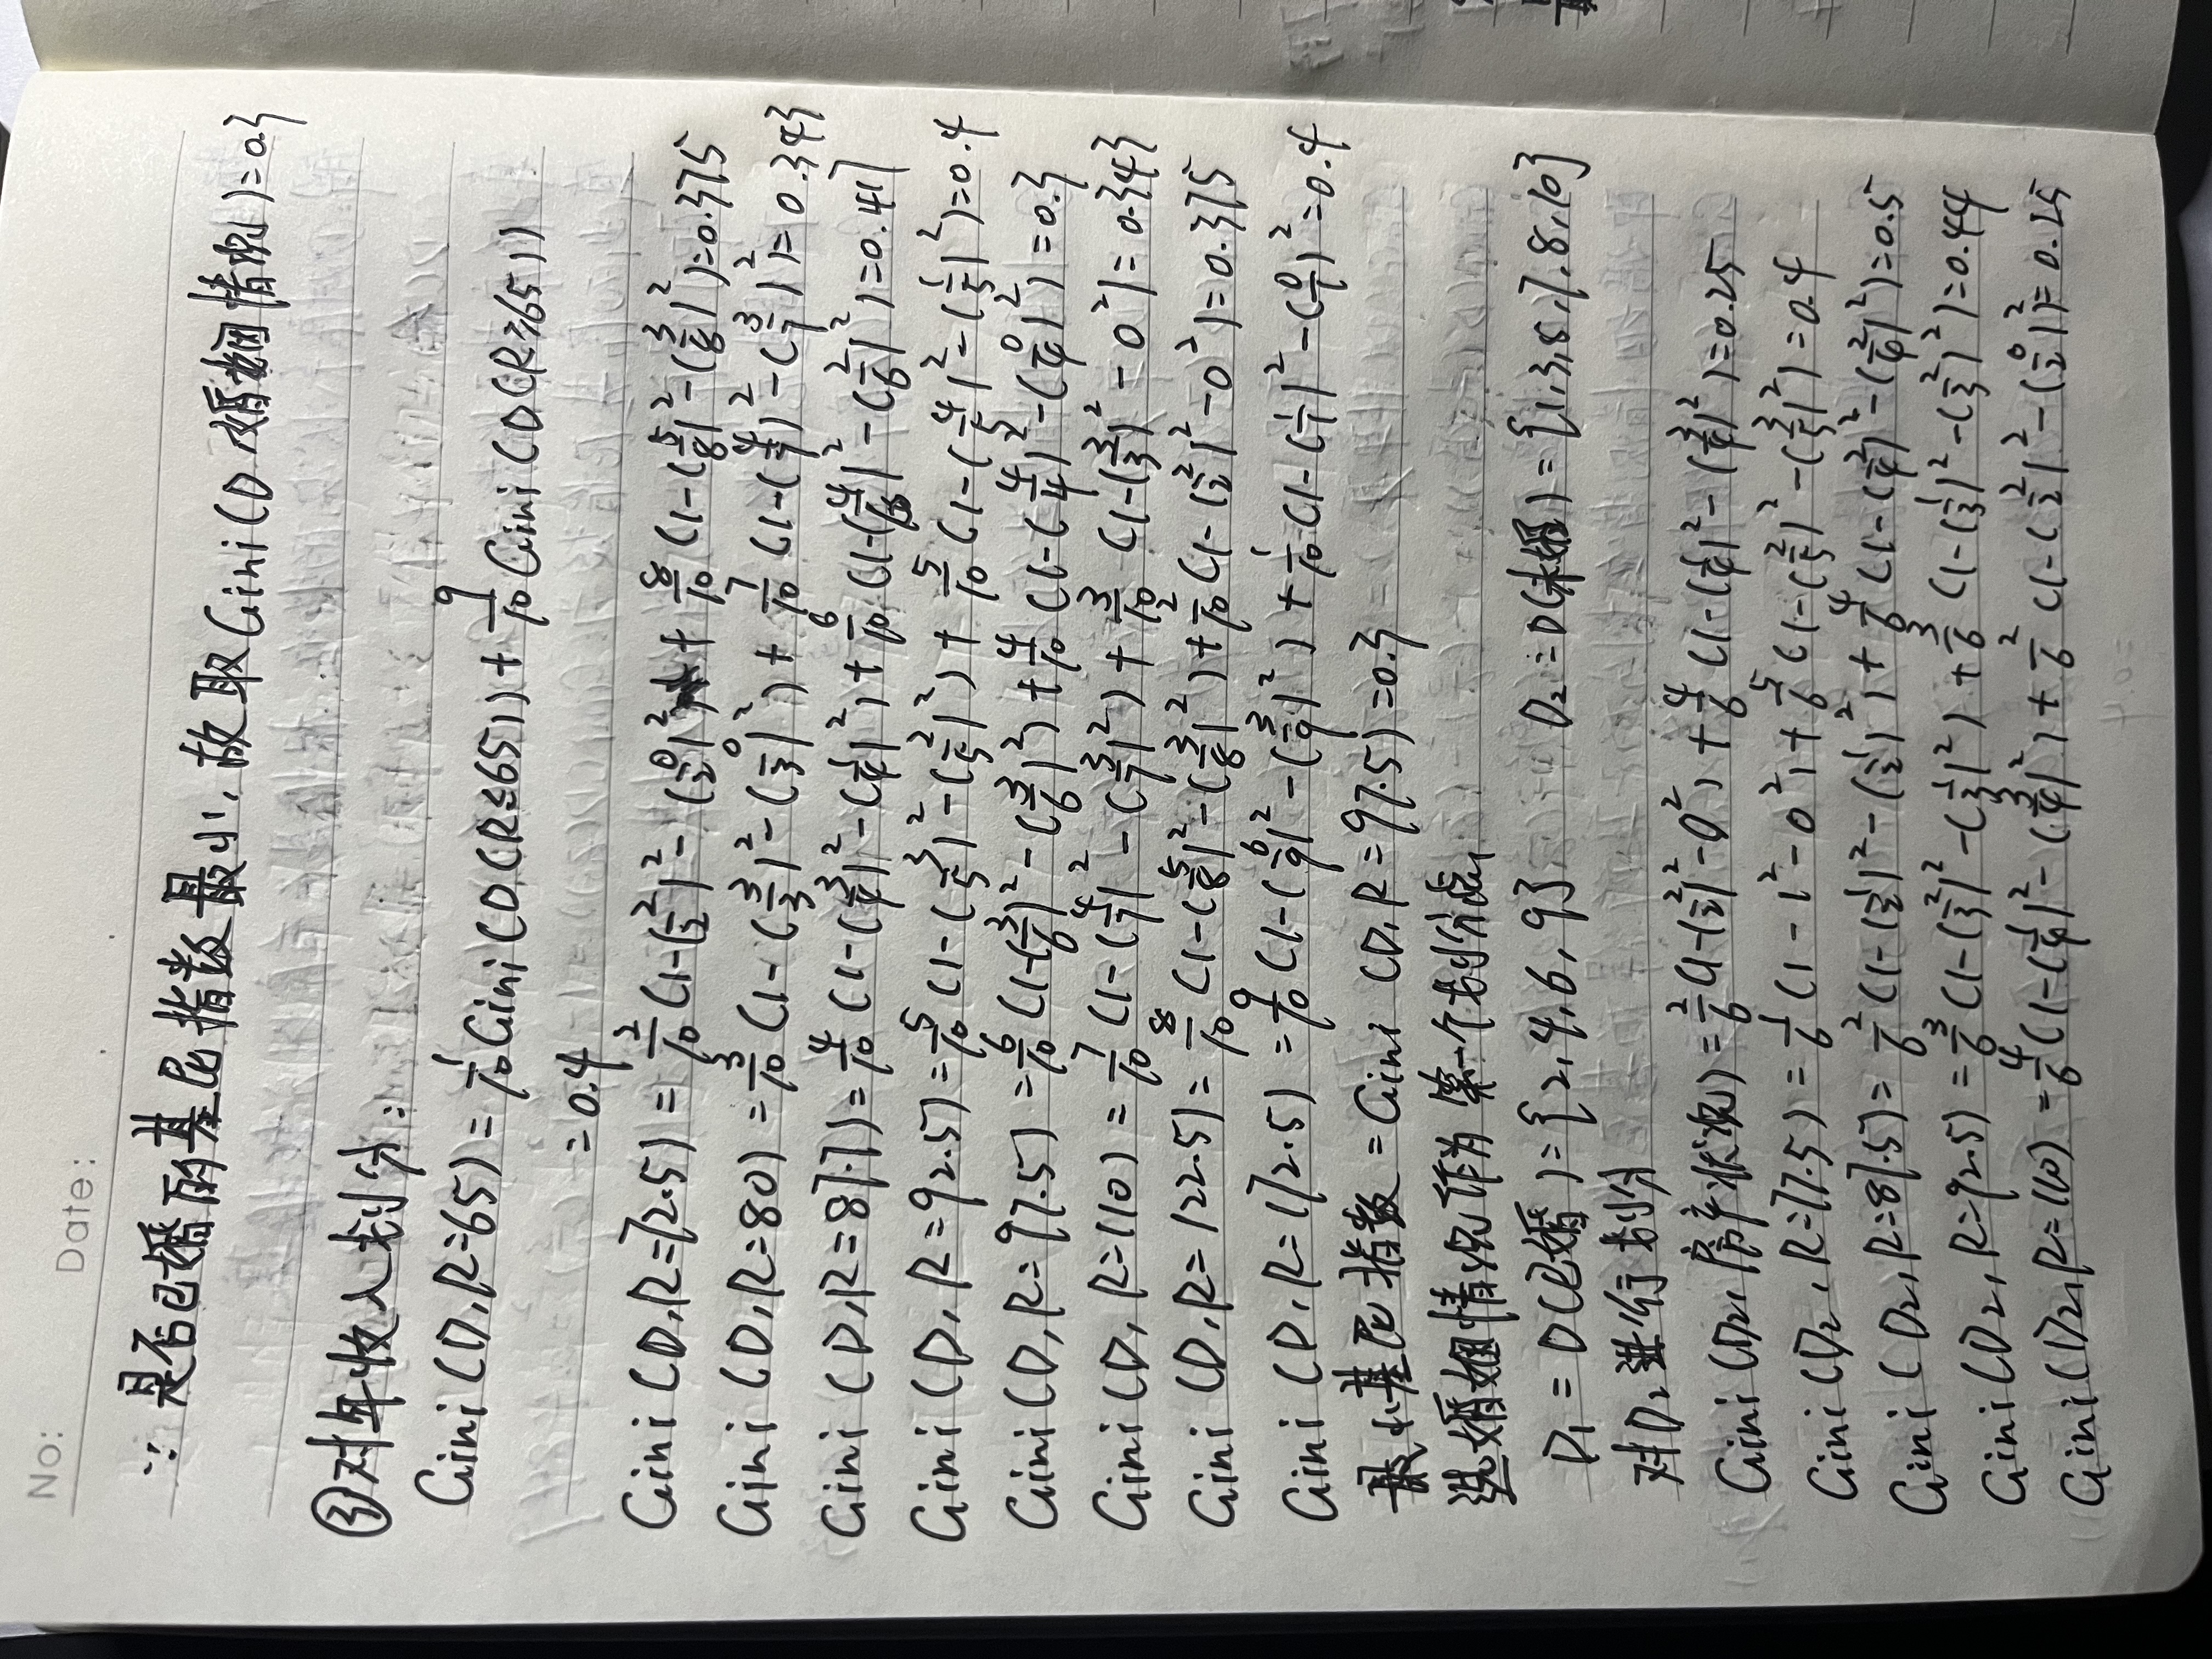 No:
Date:
∵ 是否已婚的基尼指数最小，故取Gini(D,婚姻情况)=0.3
③对年收入划分:
Gini(D,R=65)=1/10Gini(D(R≤65))+9/10Gini(D(R≥65))
=0.4
Gini(D,R=72.5)=2/10(1-(2/2)²-(0/2)²)+8/10(1-(5/8)²-(3/8)²)=0.375
Gini(D,R=80)=3/10(1-(3/3)²-(0/3)²)+7/10(1-(4/7)²-(3/7)²)=0.343
Gini(D,R=87.7)=4/10(1-(3/4)²-(1/4)²)+6/10(1-(4/6)²-(2/6)²)=0.417
Gini(D,R=92.5)=5/10(1-(3/5)²-(2/5)²)+5/10(1-(4/5)²-(1/5)²)=0.4
Gini(D,R=97.5)=6/10(1-(3/6)²-(3/6)²)+4/10(1-(4/4)²-(0/4)²)=0.3
Gini(D,R=110)=7/10(1-(4/7)²-(3/7)²)+3/10(1-(3/3)²-0²)=0.343
Gini(D,R=122.5)=8/10(1-(5/8)²-(3/8)²)+2/10(1-(2/2)²-0²)=0.375
Gini(D,R=172.5)=9/10(1-(6/9)²-(3/9)²)+1/10(1-(1/1)²-(0/1)²=0.4
最小基尼指数=Gini(D,R=97.5)=0.3
选婚姻情况作为第一个划分点
D₁=D(已婚)={2,4,6,9} D₂=D(未婚)={1,3,5,7,8,10}
对D₂进行划分
Gini(D₂,房产状况)=2/6(1-(2/2)²-0²)+4/6(1-(1/4)²-(3/4)²)=0.25
Gini(D₂,R=77.5)=1/6(1-1²-0²)+5/6(1-(2/5)²-(3/5)²)=0.4
Gini(D₂,R=87.5)=2/6(1-(1/2)²-(1/2)²)+4/6(1-(2/4)²-(2/4)²)=0.5
Gini(D₂,R=92.5)=3/6(1-(2/3)²-(1/3)²)+3/6(1-(1/3)²-(2/3)²)=0.44
Gini(D₂,R=110)=4/6(1-(1/4)²-(3/4)²)+2/6(1-(2/2)²-(0/2)²)=0.25